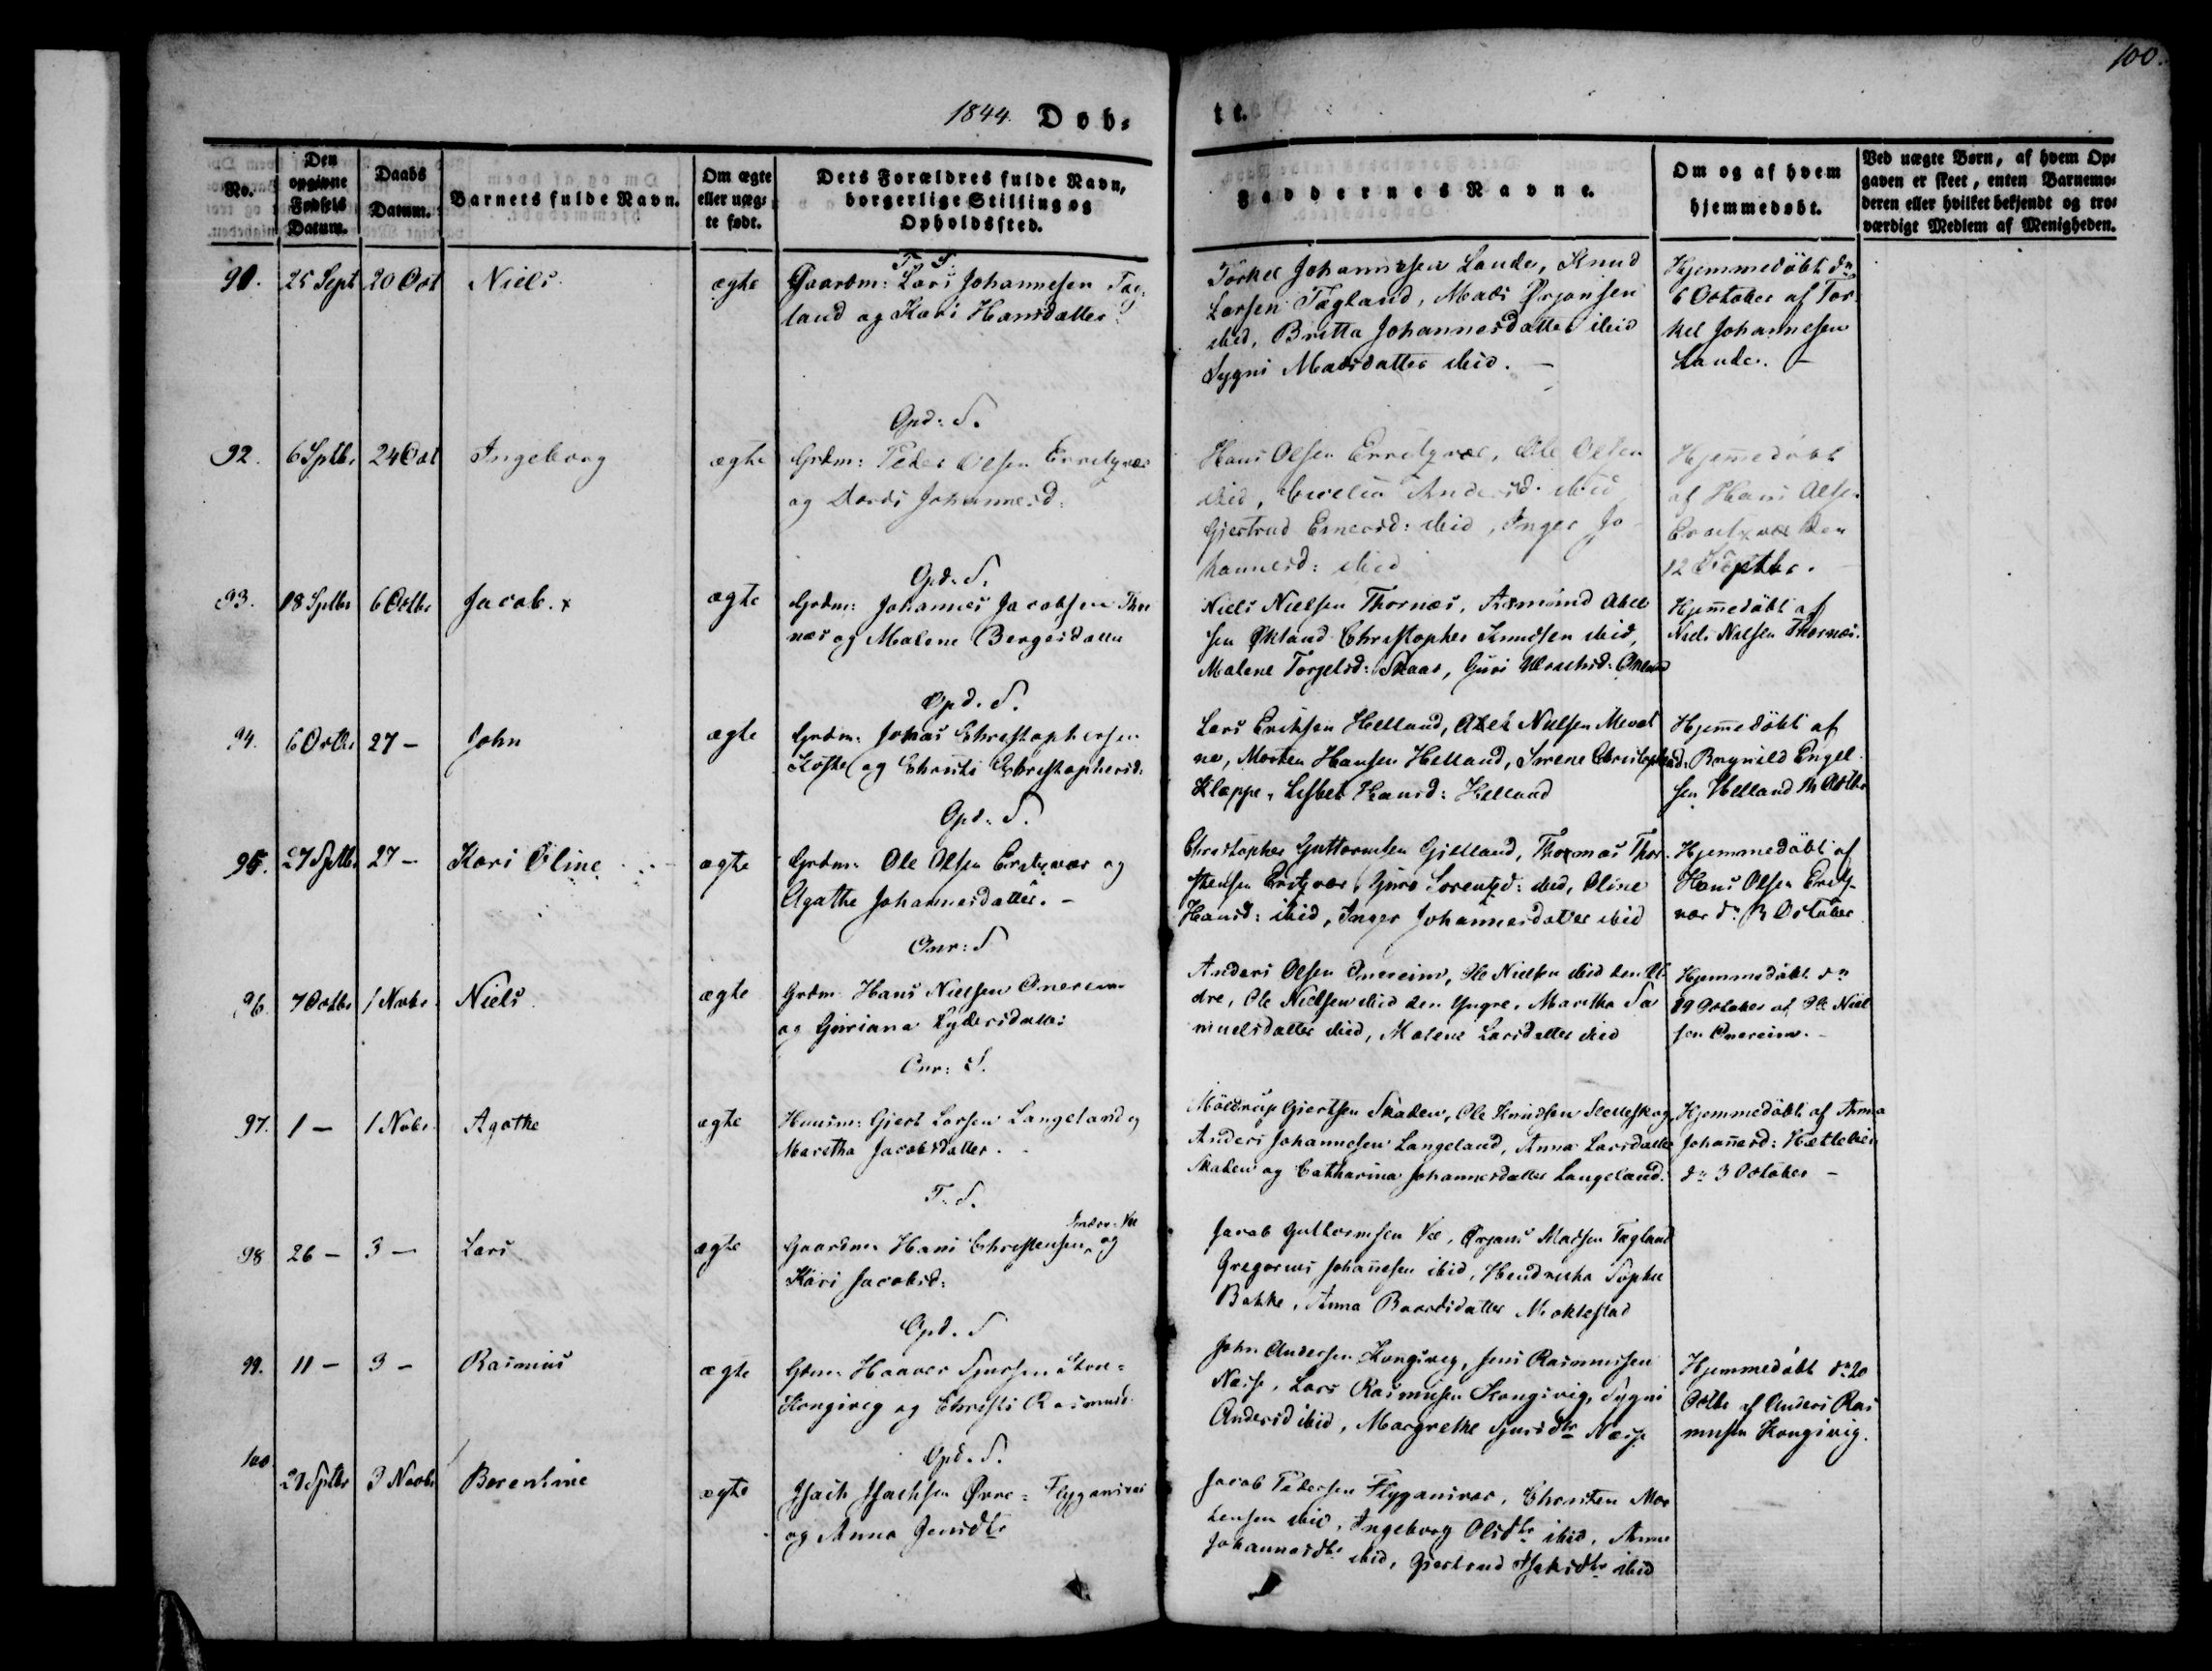 100.
1844. Døb-
te.
No.
Den opgivne Fødsels Datum.
Daabs Datum.
Barnets fulde Navn.
Om ægte eller uægte født.
Dets Forældres fulde Navn, borgerlige Stilling og Opholdssted.
Faddernes Navne.
Om og af hvem hjemmedøbt.
Ved uægte Børn, af hvem Opgaven er skeet, enten Barnemoderen eller hvilket bekjendt og troværdigt Medlem af Menigheden.
T. S.
91. 25 Sept 20 Oct Niels ægte Gaardm: Lars Johannesen Tæg-
land og Kari Hansdatter
Torkel Johannesen Lande, Knud
Larsen Tægland, Mads Ørjansen
ibid, Britta Johannesdatter ibid
Sygni Madsdatter ibid. –
Hjemmedöbt dn
6 October af Tor
kel Johannesen
Lande. –
Opd: S.
92. 6 Sptbr 24 Oct Ingeborg ægte Grdm: Peder Olsen
og Johannesd:
Hans Olsen, Ole Olsen
ibid, Andersd: ibid
Gjertrud ibid, Inger Jo-
hannesd: ibid
Hjemedöbt
af Hans Olsen
den
12 Septbr.
Opd. S.
93. 18 Sptbr 6 Octbr Jacob. x ægte Grdm: Johannes Jacobsen Thor
næs og Malene Bergesdatter
Niels Nielsen Thornæs, Asmund Abel
sen Økland Christopher Knudsen ibid,
Malene Torgelsd: Skaar, Guri
Hjemedöbt af
Niels Nielsen Thornæs.
Opd. S.
94. 6 Octbr 27 – John ægte Grdm: Johas Christophersen
og Christi Christophersd:
Lars Eriksen Helland, Nielsen
ne, Morten Hansen Helland, Christophersd:
Klappe, Lisbet Hansd: Helland
Hjemedöbt af
Engel
sen Helland Octbr
Opd: S.
95. 27 Sptbr 27 – Kari Oline ægte Grdm: Ole Olsen og
Agathe Johannesdatter. –
Christopher Guttormsen Gjelland, Thomas Thor
stensen, Guro Lorentzd: ibid, Oline
Hansd: ibid, Inger Johannesdatter ibid
Hjemmedöbt af
Hans Olsen
dn October
Onr: S
96. 7 Octbr 1 Nvbr Niels ægte Grdm: Hans Nielsen Onereim
og Gjuriana
Anders Olsen Onereim, Ole Nielsen ibid den Æl
dre, Ole Nielsen ibid den Yngre, Martha Sa
muelsdatter ibid, Malene Larsdatter ibid
Hjemmedöbt dn
19 October af Ole Niel
sen Onereim. –
Onr: S.
97. 1 – 1 Nvbr. Agathe ægte Huusm: Gjert Larsen Langeland og
Maretha Jacobsdatter.
Gjertsen Skaden, Ole Knudsen
Anders Johannesen Langeland, Anna Larsdatter
Skaden og Catharina Johannesdatter Langeland.
Hjemmedöbt af Anna
Johanesd:
dn 3 October –
T. S.
98 26 – 3 – Lars ægte Gaardm: Hans Christensen og
Kari Jacobsd:
Jacob Guttormsen Vee, Ørjans Madsen Tægland
Gregorius Johanesen ibid,
Bakke, Anna Baardsdatter Moklestad
Opd. S
99. 11 – 3 – Rasmus ægte Grdm: Haaver Sjursen
Kongsvig og Christi Rasmusd:
John Andersen Kongsvig, Jens Rasmussen
Næsse, Lars Rasmusen Kongsvig, Sygni
Andersd ibid, Margrethe Sjursdtr Næsse
Hjemmedöbt dn 20
Octbr af Anders Ras
musen Kongsvig.
Opd. S.
100 21 Sptbr 3 Novbr Berentine ægte Isach Isachsen Øvre- Flygansvær
og Anna Jensdtr
Jacob Pedersen Flygansvær, Christen Mor
tensen ibid, Ingeborg Olsdtr ibid, Anna
Johannesdtr ibid, Gjertrud Isaksdtr ibid